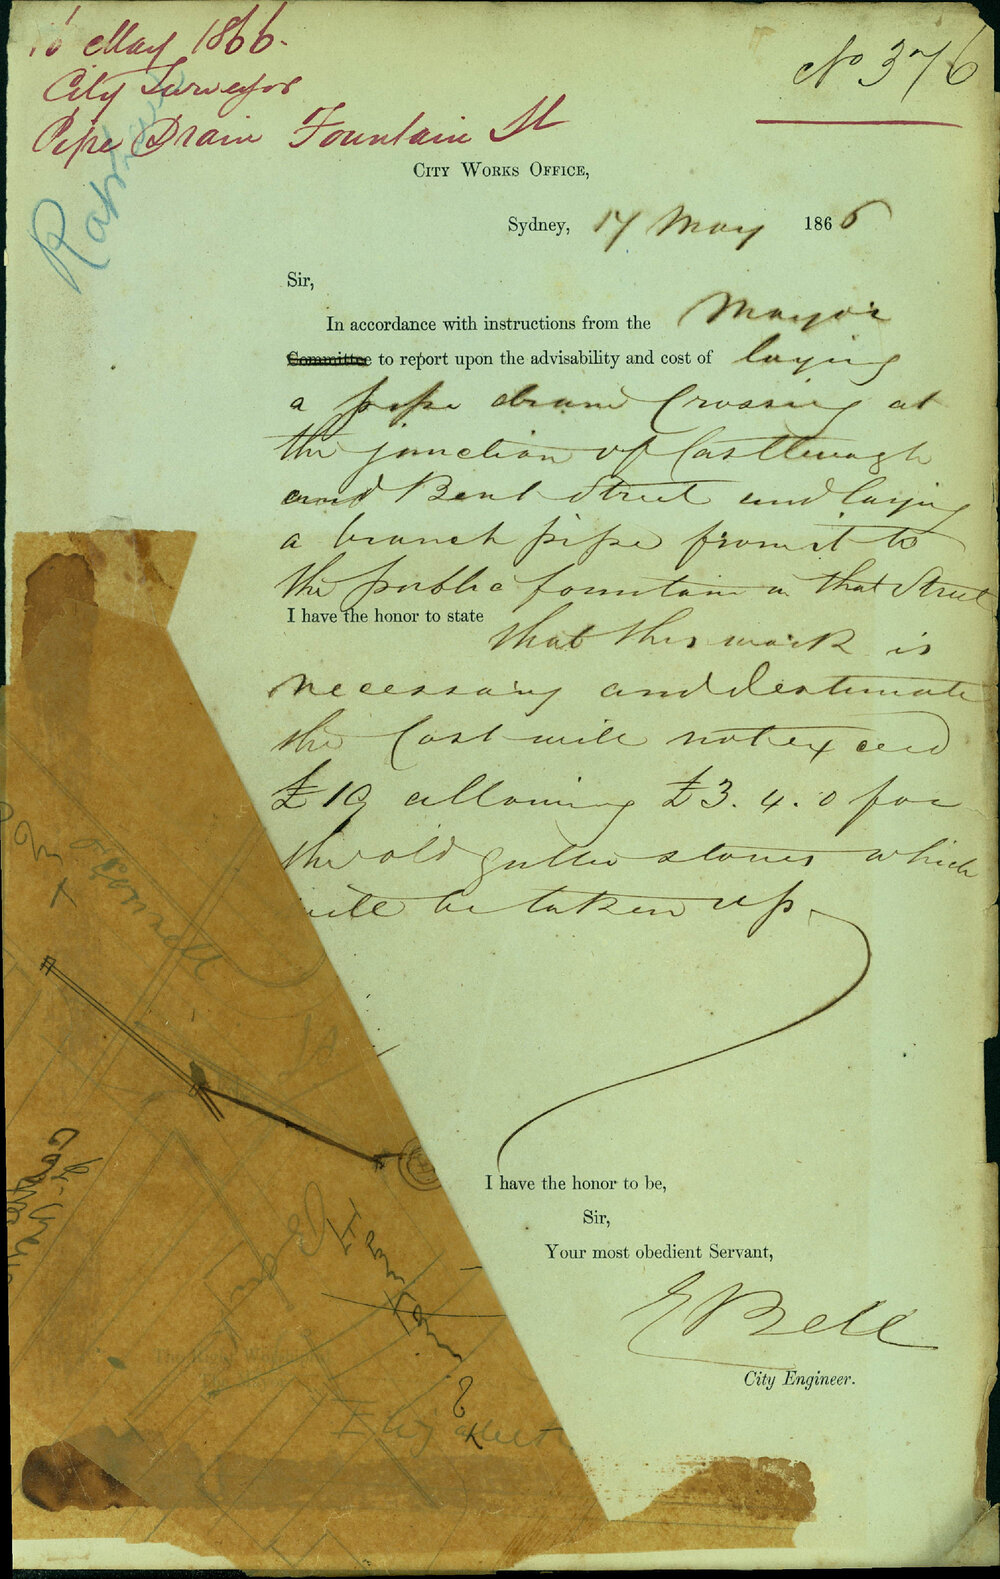 16 May 1866.
City Surveyor
Pipe Drain Fountain St
No 376
City Works Office,
Sydney, 17 May 1866
Sir,
In accordance with instructions from the Mayor
Committee to report upon the advisability and cost of laying
a pipe drain Crossing at
the junction of Castlereagh
and Bent Street and laying
a branch pipe from it to
the public fountain in that Street
I have the honor to state
that this work is
necessary and I estimate
the Cost will not exceed
£19 allowing £3.4.0 for
the old gutter stones which
will be taken up
I have the honor to be,
Sir,
Your most obedient Servant,
E Bell
City Engineer.
O'Connell
St
Fountain